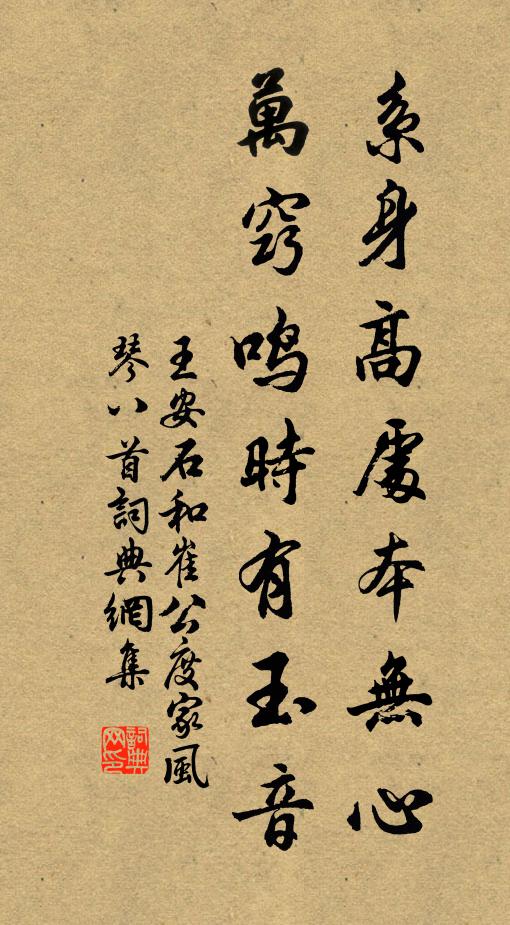 系身高處本無心
萬竅鳴時有玉音
王安石和崔公度家風
琴八首詞典網集
詞典網印